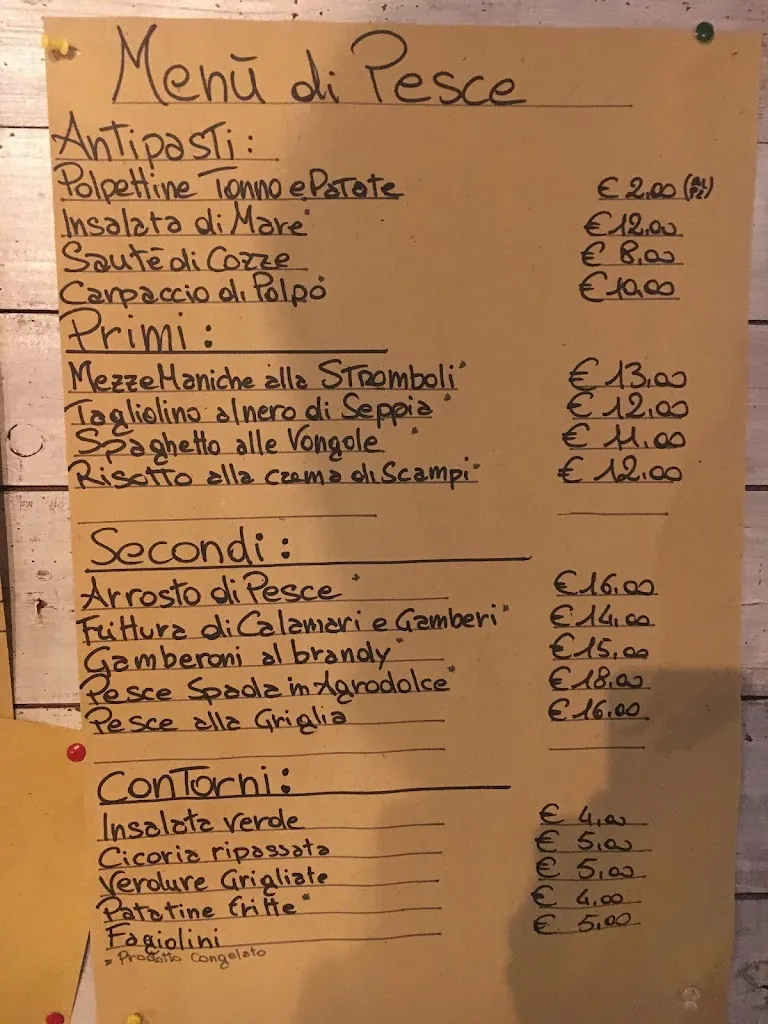 Menū di Pesce
Antipasti:
Polpettine Tonno e Patate € 2,00 (AL PZ)
Insalata di Mare* € 12,00
Sauté di Cozze € 8,00
Carpaccio di Polpo € 10,00
Primi:
Mezze Maniche alla Stromboli* € 13,00
Tagliolino al nero di Seppia* € 12,00
Spaghetto alle Vongole* € 11,00
Risotto alla crema di Scampi* € 12,00
Secondi:
Arrosto di Pesce* € 16,00
Frittura di Calamari e Gamberi* € 14,00
Gamberoni al brandy* € 15,00
Pesce Spada in Agrodolce* € 18,00
Pesce alla Griglia € 16,00
Contorni:
Insalata verde € 4,00
Cicoria ripassata € 5,00
Verdure Grigliate € 5,00
Patatine fritte* € 4,00
Fagiolini € 5,00
* Prodotto Congelato